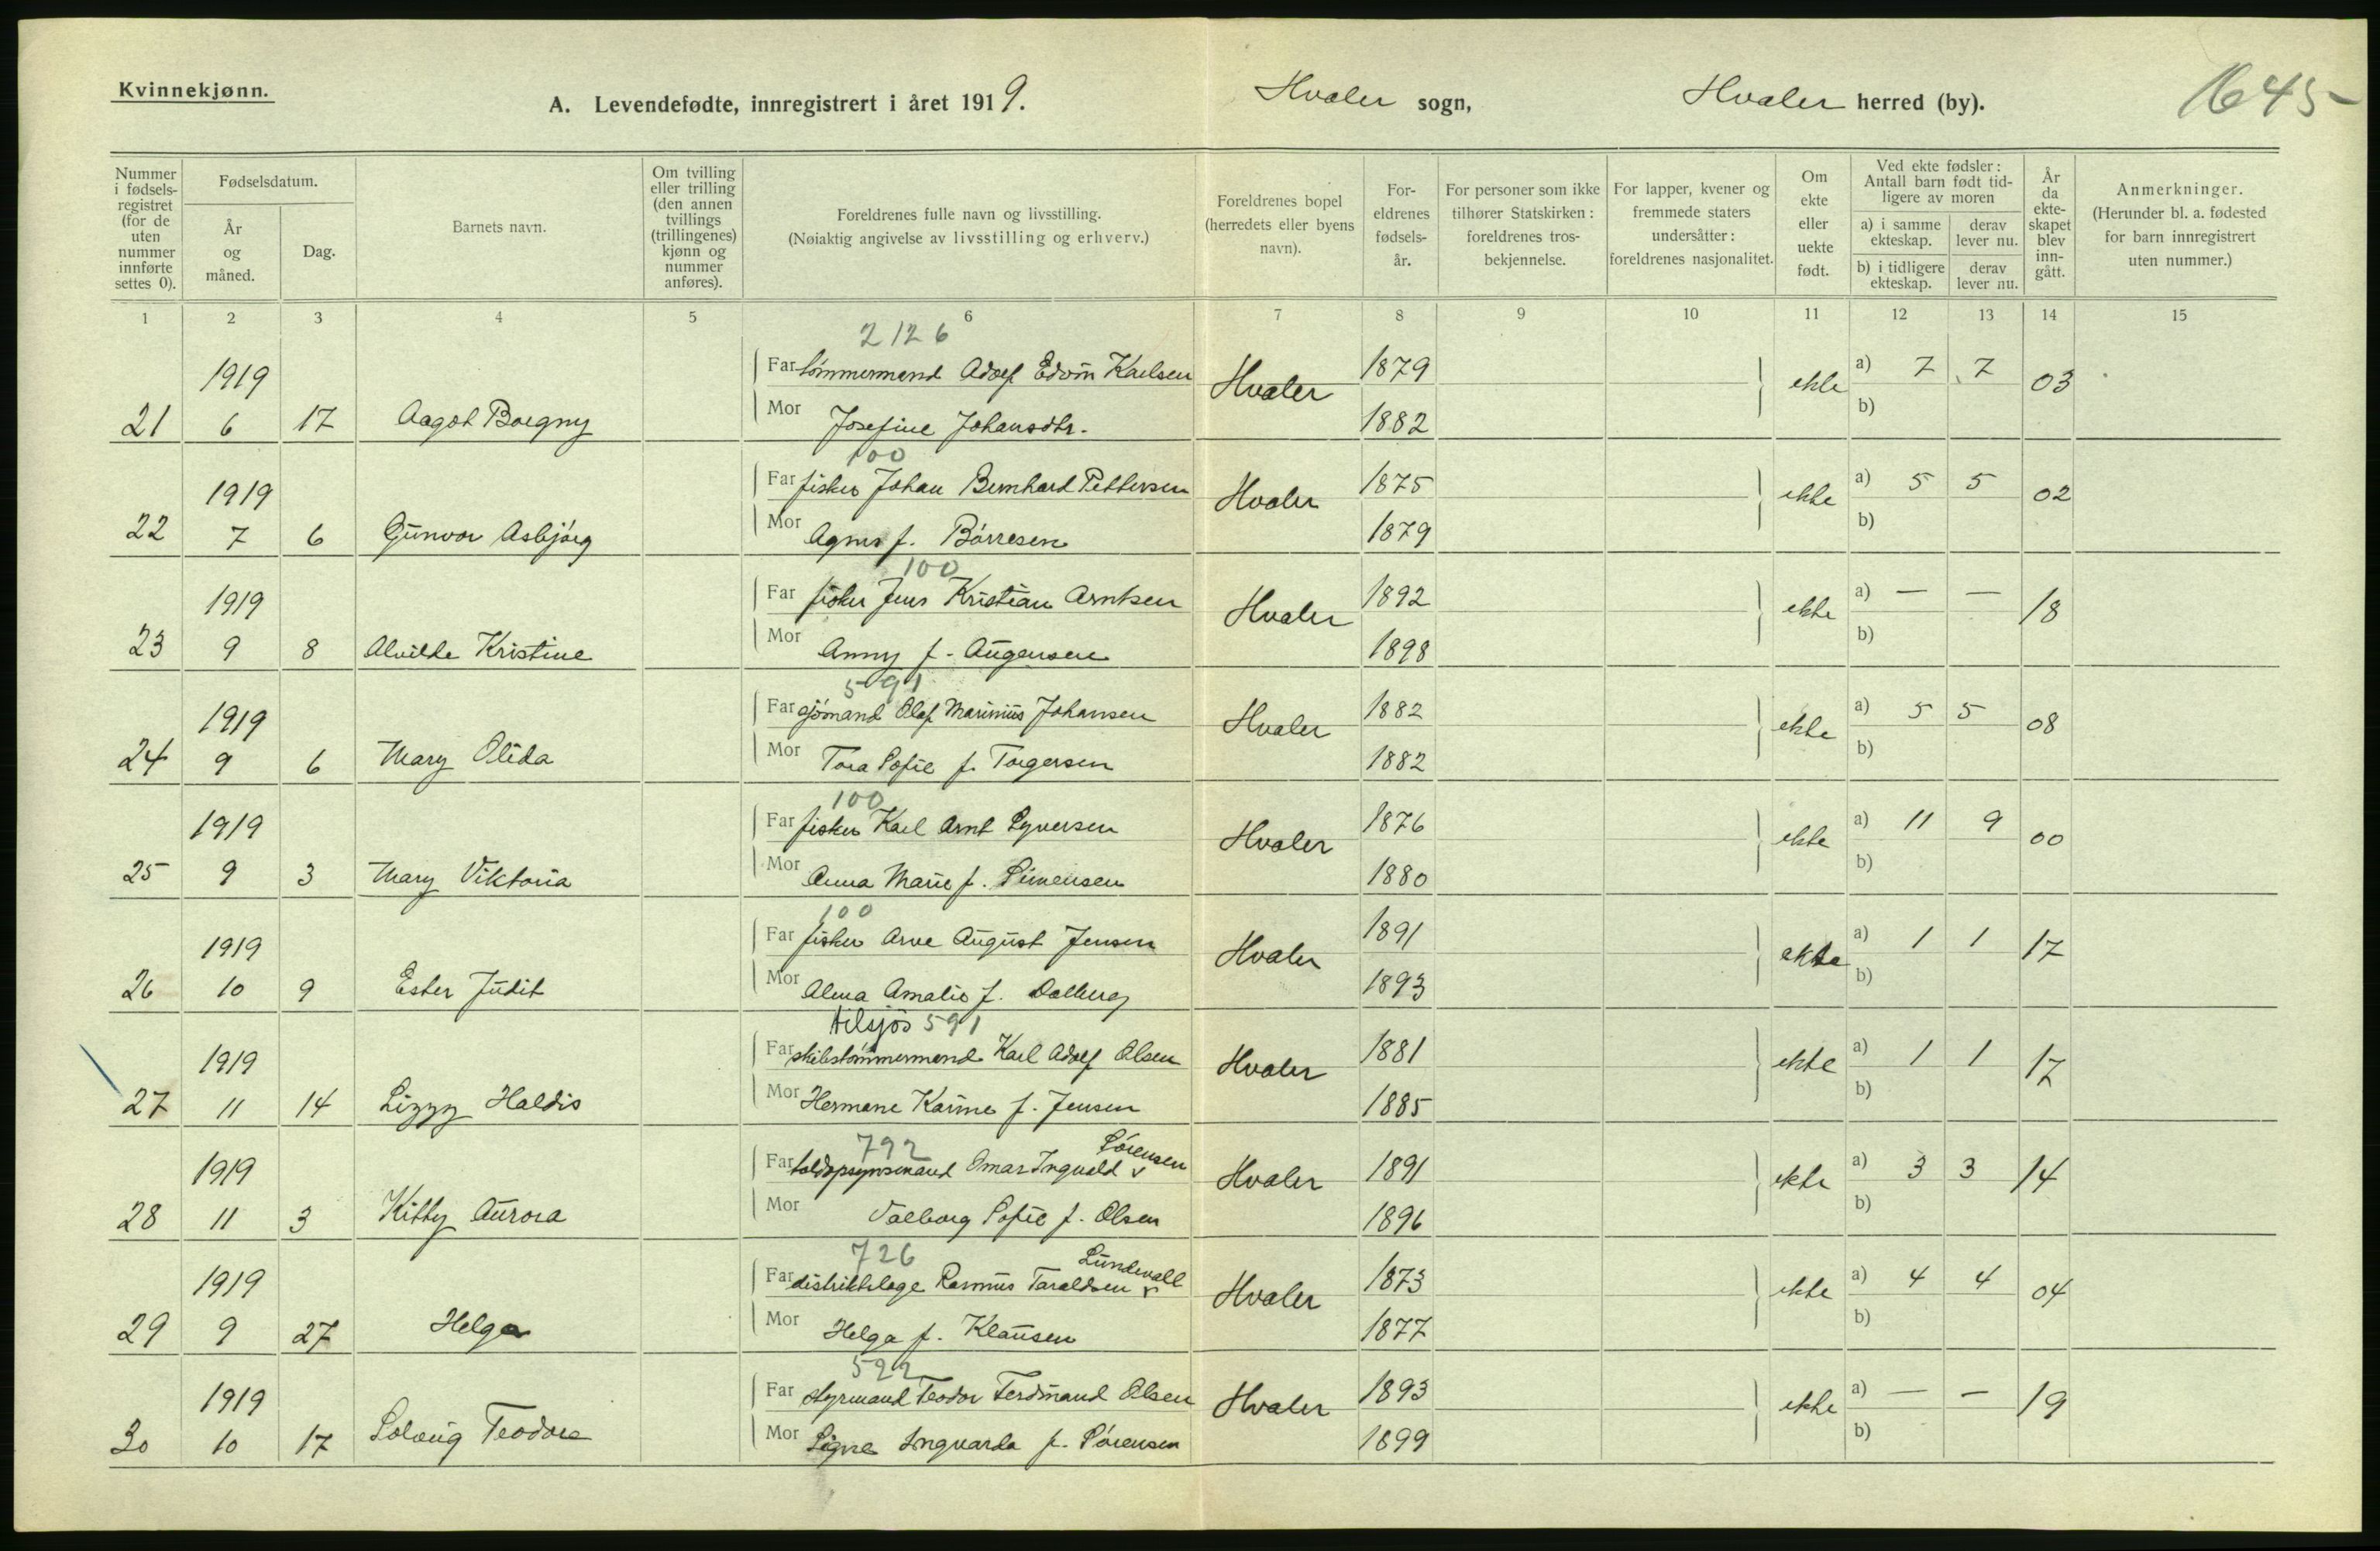 Kvinnekjønn.
A. Levendefødte, innregistrert i året 1919. Hvaler sogn, Hvaler herred (by). 1645-
Nummer i fødsels-registret (for de uten nummer innførte settes 0).
Fødselsdatum.
År og måned.
Dag.
Barnets navn.
Om tvilling eller trilling (den annen tvillings (trillingenes) kjønn og nummer anføres).
Foreldrenes fulle navn og livsstilling.
(Nøiaktig angivelse av livsstilling og erhverv.)
Foreldrenes bopel (herredets eller byens navn).
For-eldrenes fødsels-år.
For personer som ikke tilhører Statskirken: foreldrenes tros-bekjennelse.
For lapper, kvener og fremmede staters undersåtter: foreldrenes nasjonalitet.
Om ekte eller uekte født.
Ved ekte fødsler: Antall barn født tid-ligere av moren
a) i samme ekteskap. derav lever nu.
b) i tidligere ekteskap. derav lever nu.
År da ekte-skapet blev inn-gått.
Anmerkninger.
(Herunder bl. a. fødested for barn innregistrert uten nummer.)
1 2 3 4 5 6 7 8 9 10 11 12 13 14 15
2126
1919 Far tømmermand Adolf Edvin Karlsen Hvaler 1879 ekte a) 7 7 03
21 6 17 Aagot Borgny Mor Josefine Johansdtr. 1882 b)
100
1919 Far fisker Johan Bernhard Pettersen Hvaler 1875 ekte a) 5 5 02
22 7 6 Gunvor Asbjørg Mor Agnes f. Børresen 1879 b)
100
1919 Far fisker Jens Kristian Arntsen Hvaler 1892 ekte a) — — 18
23 9 8 Alvilde Kristine Mor Anny f. Augensen 1898 b)
591
1919 Far sjømand Olaf Marinius Johansen Hvaler 1882 ekte a) 5 5 08
24 9 6 Mary Olida Mor Tora Sofie f. Torgersen 1882 b)
100
1919 Far fisker Karl Arnt Syversen Hvaler 1876 ekte a) 11 9 00
25 9 3 Mary Viktoria Mor Anna Marie f. Simensen 1880 b)
100
1919 Far fisker Arve August Jensen Hvaler 1891 ekte a) 1 1 17
26 10 9 Ester Judit Mor Alma Amalie f. Dalberg 1893 b)
tilsjøs 591
1919 Far skibstømmermand Karl Adolf Olsen Hvaler 1881 ekte a) 1 1 17
27 11 14 Lizzy Haldis Mor Hermane Karine f. Jensen 1885 b)
792 Sørensen
1919 Far toldopsynsmand Omar Ingvald v Hvaler 1891 ekte a) 3 3 14
28 11 3 Kitty Aurora Mor Valborg Sofie f. Olsen 1896 b)
726 Lundevall
1919 Far distriktslæge Rasmus Taraldsen v Hvaler 1873 ekte a) 4 4 04
29 9 27 Helga Mor Helga f. Klausen 1877 b)
522
1919 Far styrmand Teodor Ferdinand Olsen Hvaler 1893 ekte a) — — 19
30 10 17 Solveig Teodora Mor Signe Ingvarda f. Sørensen 1899 b)